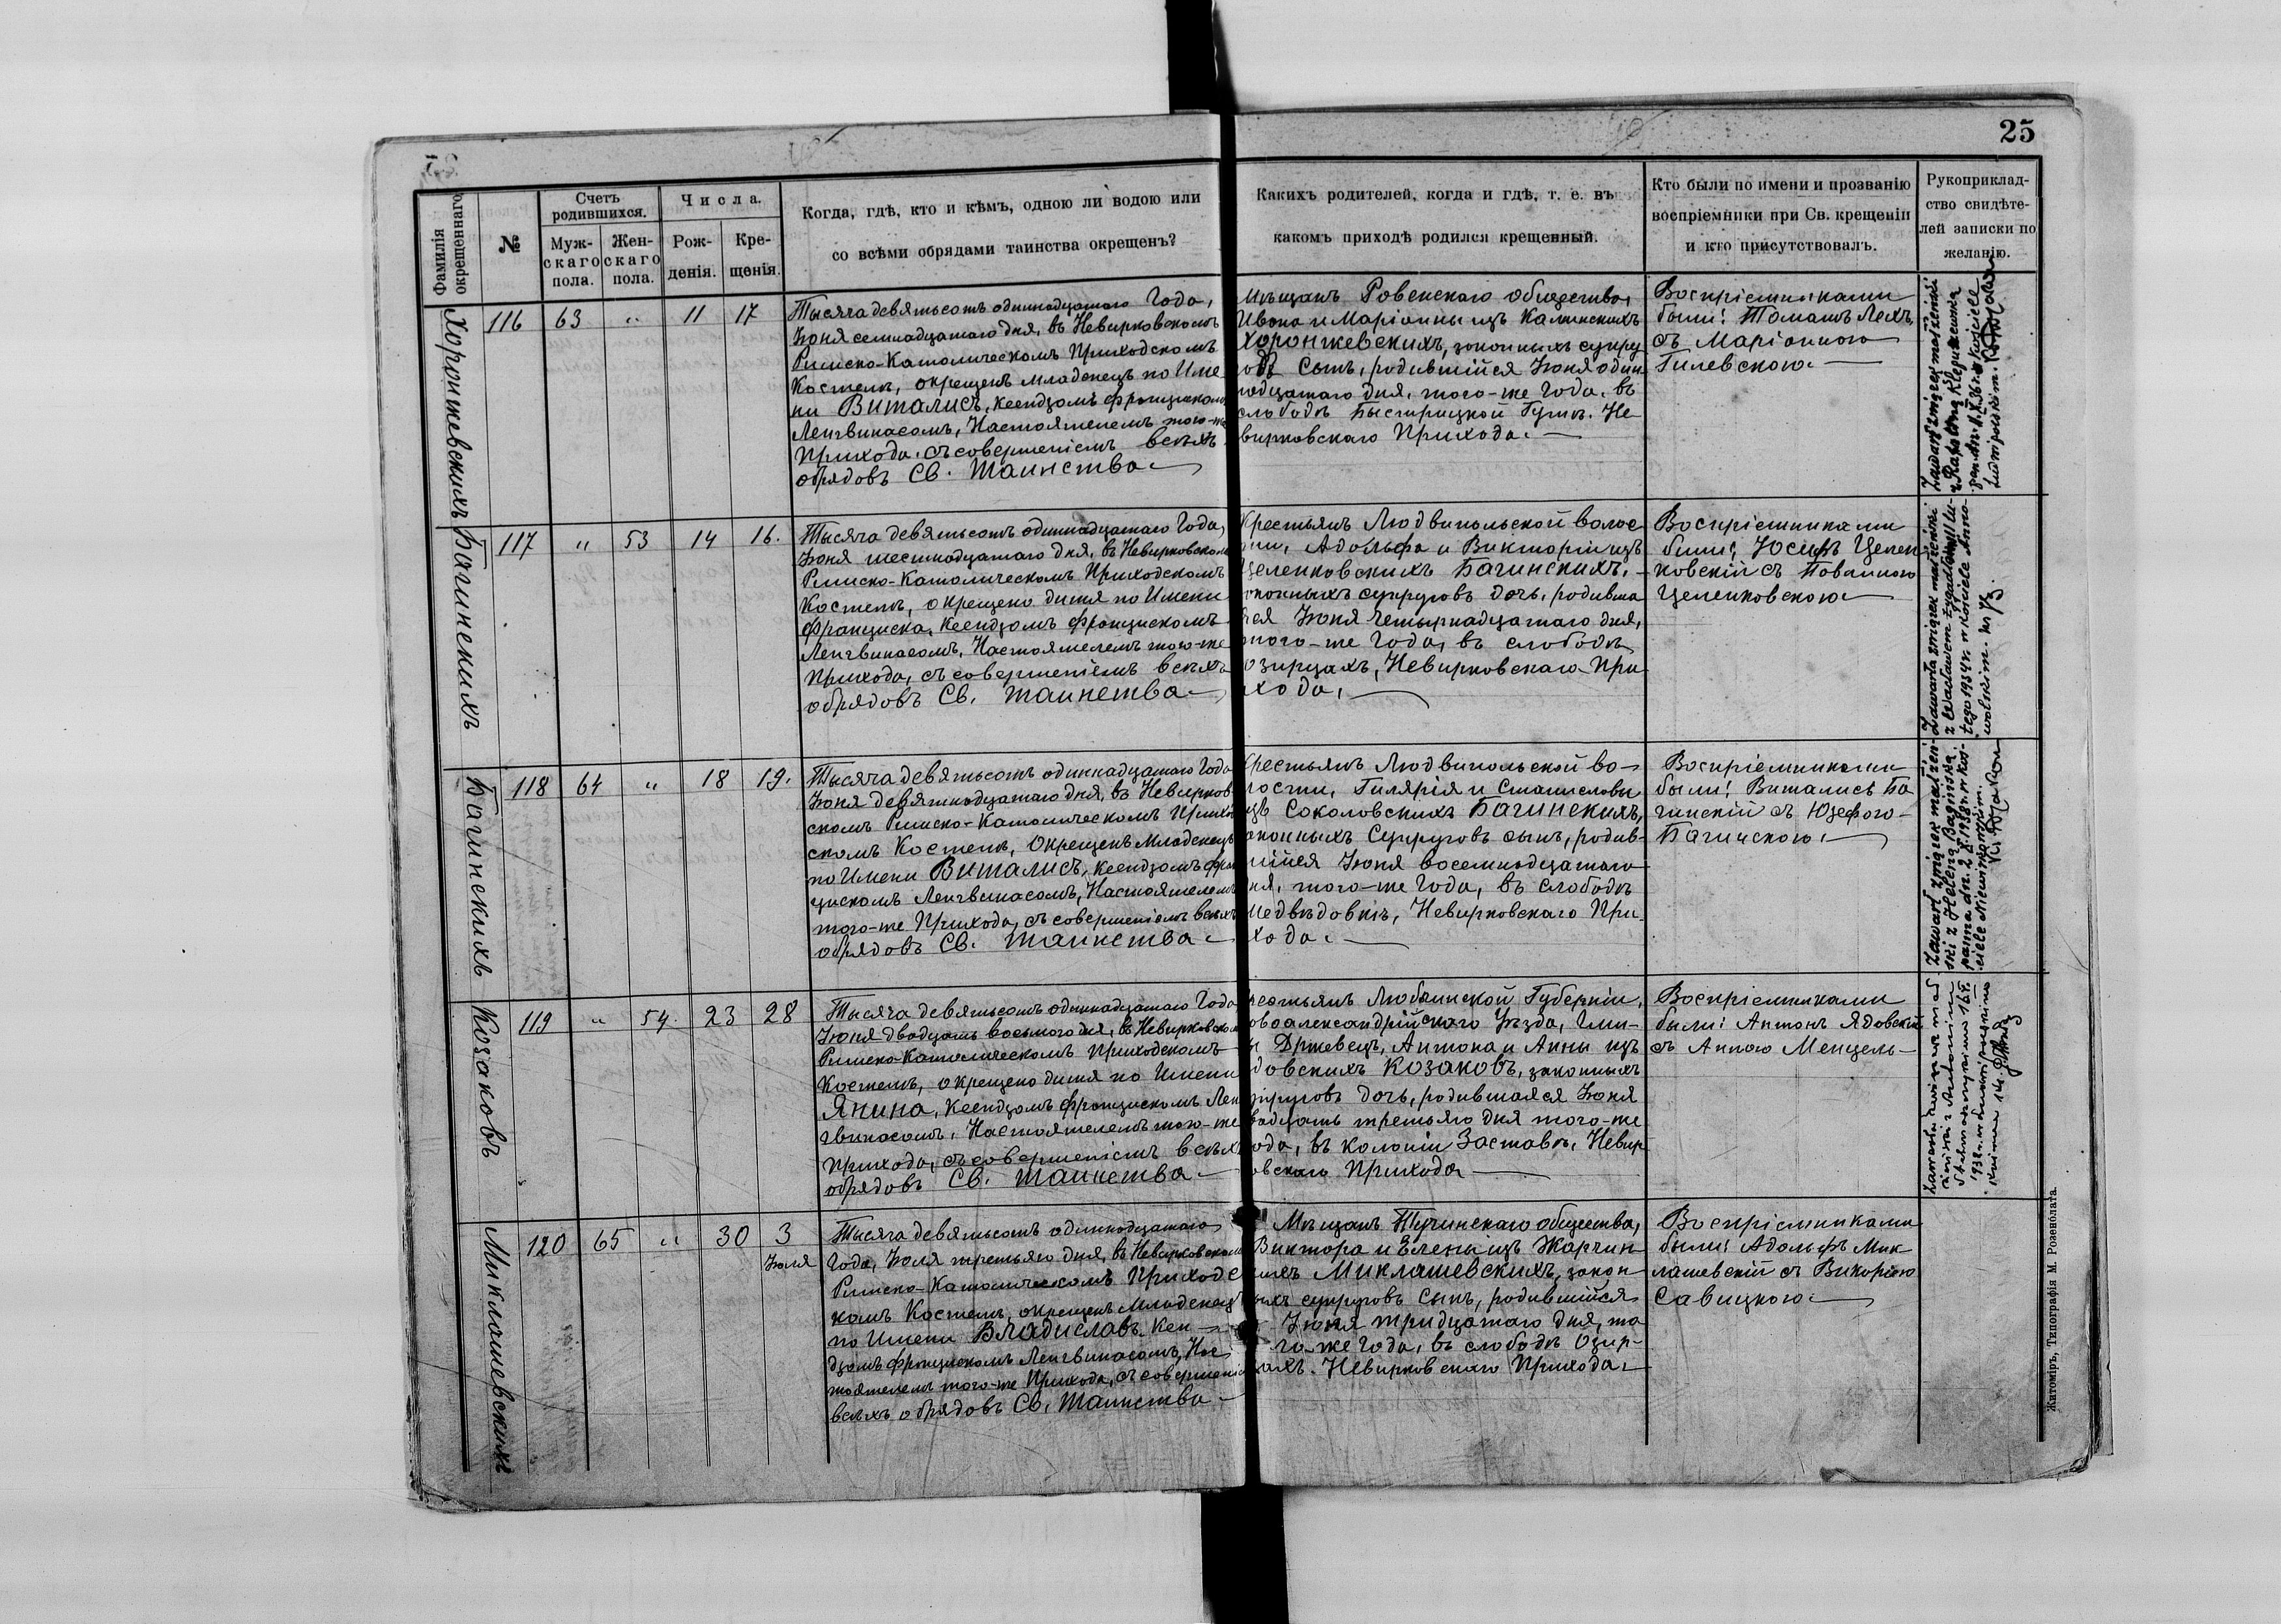 25
Фамилія окрещеннаго.
№
Счетъ родившихся.
Мужскаго пола.
Женскаго пола.
Числа.
Рожденія.
Крещенія.
Когда, гдѣ, кто и кѣмъ, одною ли водою или
со всѣми обрядами таинства окрещенъ?
Какихъ родителей, когда и гдѣ, т. е. въ
какомъ приходѣ родился крещенный.
Кто были по имени и прозванію
воспріемники при Св. крещеніи
и кто присутствовалъ.
Рукоприклад-
ство свидѣте-
лей записки по
желанію.
Хоронжевскихъ
116 63 " 11 17
Тысяча девятьсотъ одиннадцатаго Года,
Іюня семнадцатаго дня, въ Невирковскомъ
Римско-Католическомъ Приходскомъ
Костелѣ, окрещенъ младенецъ по Име-
ни Виталисъ, Ксендзомъ Францискомъ
Ленгвинасомъ, Настоятелемъ того-же
Прихода, съ совершеніемъ всѣхъ
обрядовъ Св. Таинства.
Мѣщанъ Ровенскаго общества,
Ивана и Маріанны изъ Калинскихъ
Хоронжевскихъ, законныхъ супру
говъ Сынъ, родившійся Іюня один
надцатаго дня, того-же Года, въ
слободѣ Быстрицкой Гутѣ, Не
вирковскаго Прихода.
Воспріемниками
были: Томашъ Лехъ,
съ Маріанною
Гилевскою.
Zawarł związek małżeński
z Rafaliną Klepaczewską
Ludwipolskim.
Багинскихъ
117 " 53 14 16.
Тысяча девятьсотъ одиннадцатаго Года,
Іюня шестнадцатаго дня, въ Невирковскомъ
Римско-Католическомъ Приходскомъ
Костелѣ, окрещено дитя по Имени
Франциска, Ксендзомъ Францискомъ
Ленгвинасомъ, Настоятелемъ того-же
Прихода, съ совершеніемъ всѣхъ
обрядовъ Св. Таинства
Крестьянъ Людвипольской волос
ти, Адольфа и Викторіи изъ
Целенковскихъ Багинскихъ,
законныхъ супруговъ дочь, родивша
яся Іюня четырнадцатаго дня,
того-же Года, въ слободѣ
Озирцахъ, Невирковскаго При
хода,
Воспріемниками
были: Юсифъ Целен
ковскій съ Іоанною
Целенковскою
Zawarła związek małżeński
z Wacławem
tego 1934 r. w Kościele Anno-
wolskim.
Багинскихъ
118 64 " 18 19.
Тысяча девятьсотъ одиннадцатаго Года
Іюня девятнадцатаго дня, въ Невирков
скомъ Римско-Католическомъ Приход
скомъ Костелѣ, Окрещенъ Младенецъ
по Имени Виталисъ, Ксендзомъ Фран
цискомъ Ленгвинасомъ, Настоятелемъ
того-же Прихода, съ совершеніемъ всѣхъ
обрядовъ Св. Таинства
Крестьянъ Людвипольской во-
лости, Гилярія и Станиславы
изъ Соколовскихъ Багинскихъ,
законныхъ Супруговъ сынъ, родив-
шійся Іюня восемнадцатаго
дня, того-же Года, въ слободѣ
Медвѣдовкѣ, Невирковскаго При-
хода.
Воспріемниками
были: Виталисъ Ба
гинскій съ Юзефою
Багинскою.
Zawarł związek małżeń-
ski z Heleną Bagińską
panna dn. 2 X 1938 r. w Koś-
ciele Niewirkowskim.
Козаковъ
119 " 54. 23 28
Тысяча девятьсотъ одиннадцатаго Года
Іюня двадцать восьмого дня, въ Невирковскомъ
Римско-Католическомъ Приходскомъ
Костелѣ, окрещено дитя по Имени
Янина, Ксендзомъ Францискомъ Лен
гвинасомъ, Настоятелемъ того-же
Прихода, съ совершеніемъ всѣхъ
обрядовъ Св. Таинства
Крестьянъ Люблинской Губерніи,
Новоалександрійскаго Уѣзда, Гми-
ны Држевецъ, Антона и Анны изъ
Ядовскихъ Козаковъ, законныхъ
супруговъ дочь, родившаяся Іюня
двадцать третьяго дня того-же
Года, въ колоніи Заставѣ, Невир
ковскаго Прихода
Воспріемниками
были: Антонъ Ядовскій
съ Анною Менцель
Миклашевскихъ
120 65 " 30 3 Іюля
Тысяча девятьсотъ одиннадцатаго
Года, Іюля третьяго дня, въ Невирковскомъ
Римско-Католическомъ Приходс
комъ Костелѣ, окрещенъ Младенецъ
по Имени Владиславъ, Ксен
дзомъ Францискомъ Ленгвинасомъ, Нас
тоятелемъ того-же Прихода, съ совершеніемъ
всѣхъ обрядовъ Св. Таинства
Мѣщанъ Тучинскаго общества,
Виктора и Елены изъ Жарчин
скихъ Миклашевскихъ, закон
ныхъ супруговъ Сынъ, родившійся
Іюня тридцатаго дня, то
го же Года, въ слободѣ Озир-
цахъ. Невирковскаго Прихода.
Воспріемниками
были: Адольфъ Мик
лашевскій съ Викоріею
Савицкою.
Житоміръ, Типографія М. Розенблата.